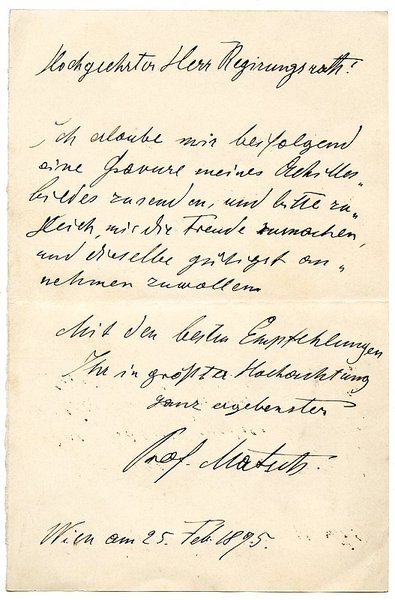 Hochgeehrter Herr Regirungsrath!
Ich erlaube mir beifolgend
eine Gravure meines Achilles„
bildes zusenden, und bitte zu„
gleich, mir die Freude zumachen,
und dieselbe gütigst an„
nehmen zuwollen.
Mit den besten Empfehlungen
Ihr in größter Hochachtung
ganz ergebenster
Prof. Matsch.
Wien am 25. Feb. 1895.